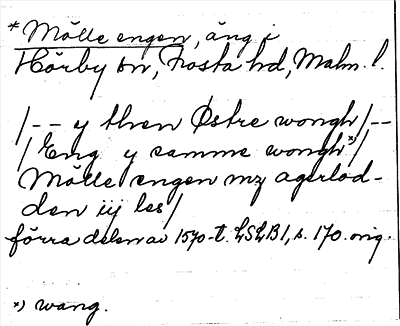 * Mölle engen, äng i
Hörby sn, Frosta hd, Malm. l.
/-- y then Østre wongh /--
/ Eng y samme wongh *) /
Mölle engen mz agerlod-
den iij les /
förra delen av 1570-t. LSLB1, s. 170. orig.
*) wang.